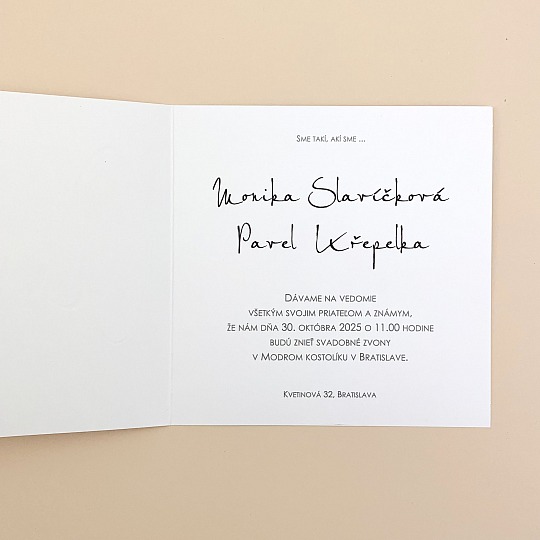 Sme takí, akí sme ...
Monika Slavíčková
Pavel Křepelka
Dávame na vedomie
všetkým svojim priateľom a známym,
že nám dňa 30. októbra 2025 o 11.00 hodine
budú znieť svadobné zvony
v Modrom kostolíku v Bratislave.
Kvetinová 32, Bratislava